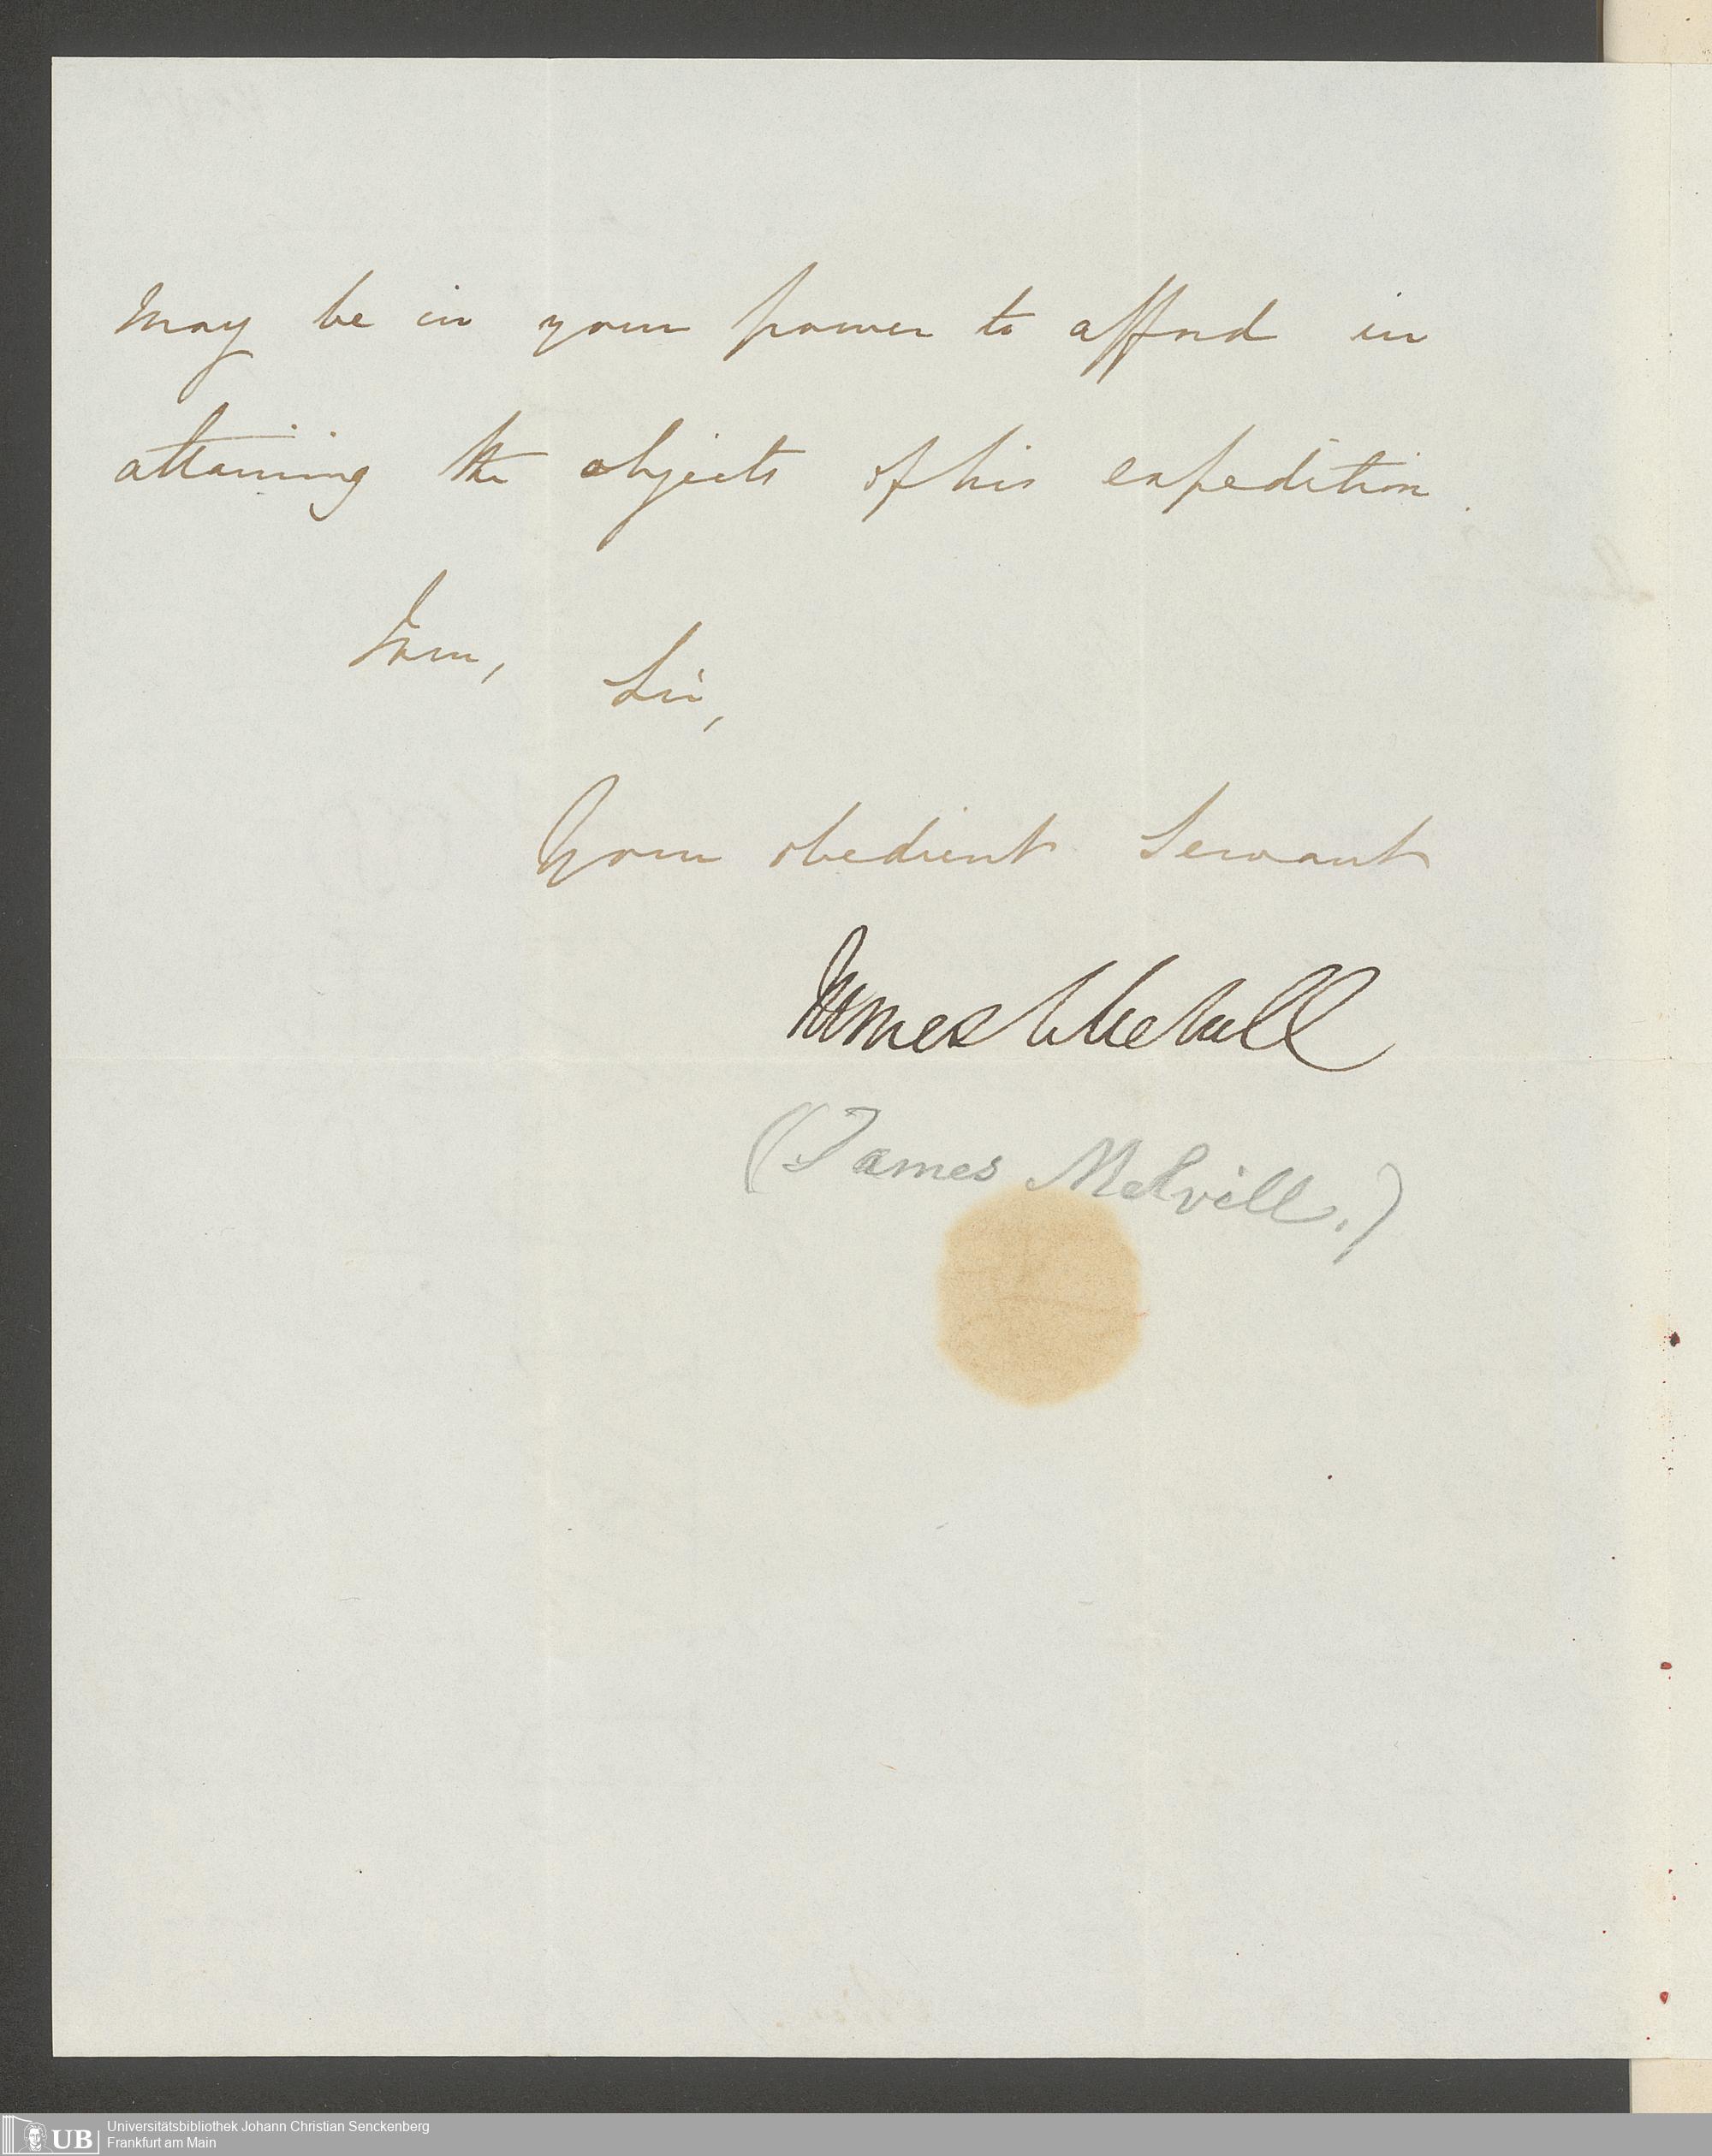 may be in your power to afford in
attaining the objects of his expedition.
I am,
Sir,
Your obedient Servant
James C Melvill
(James Melvill.)
UB Universitätsbibliothek Johann Christian Senckenberg
Frankfurt am Main